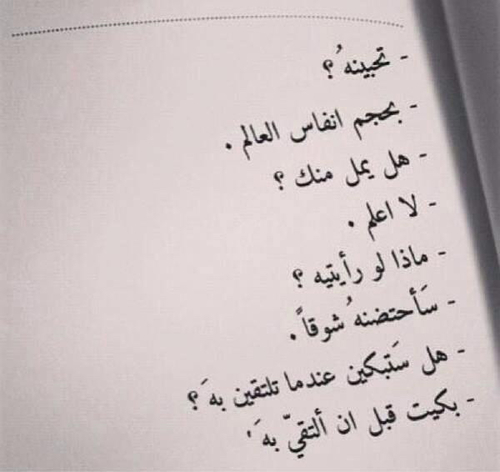 - تحبينهُ ؟
- بحجم انفاس العالم .
- هل يمل منك ؟
- لا اعلم .
- ماذا لو رأيتيه ؟
- سَأحتضنهُ شوقاً .
- هل سَتبكين عندما تلتقين به َ ؟
- بكيت قبل ان ألتقيّ به َ '